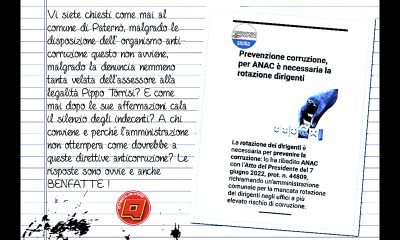 Vi siete chiesti come mai al
comune di Paternò, malgrado le
disposizione dell' organismo anti-
corruzione questo non avviene,
malgrado la denuncia nemmeno
tanta velata dell'assessore alla
legalità Pippo Torrisi? E come
mai dopo le sue affermazioni cala
il silenzio degli indecenti? A chi
conviene e perchè l'amministrazione
non ottempera come dovrebbe a
queste direttive anticorruzione? Le
risposte sono ovvie e anche
BENFATTE !
sicilia
Prevenzione corruzione,
per ANAC è necessaria la
rotazione dirigenti
La rotazione dei dirigenti è
necessaria per prevenire la
corruzione: lo ha ribadito ANAC
con l'Atto del Presidente del 7
giugno 2022, prot. n. 44809,
richiamando un'amministrazione
comunale per la mancata rotazione
dei dirigenti negli uffici a più
elevato rischio di corruzione.